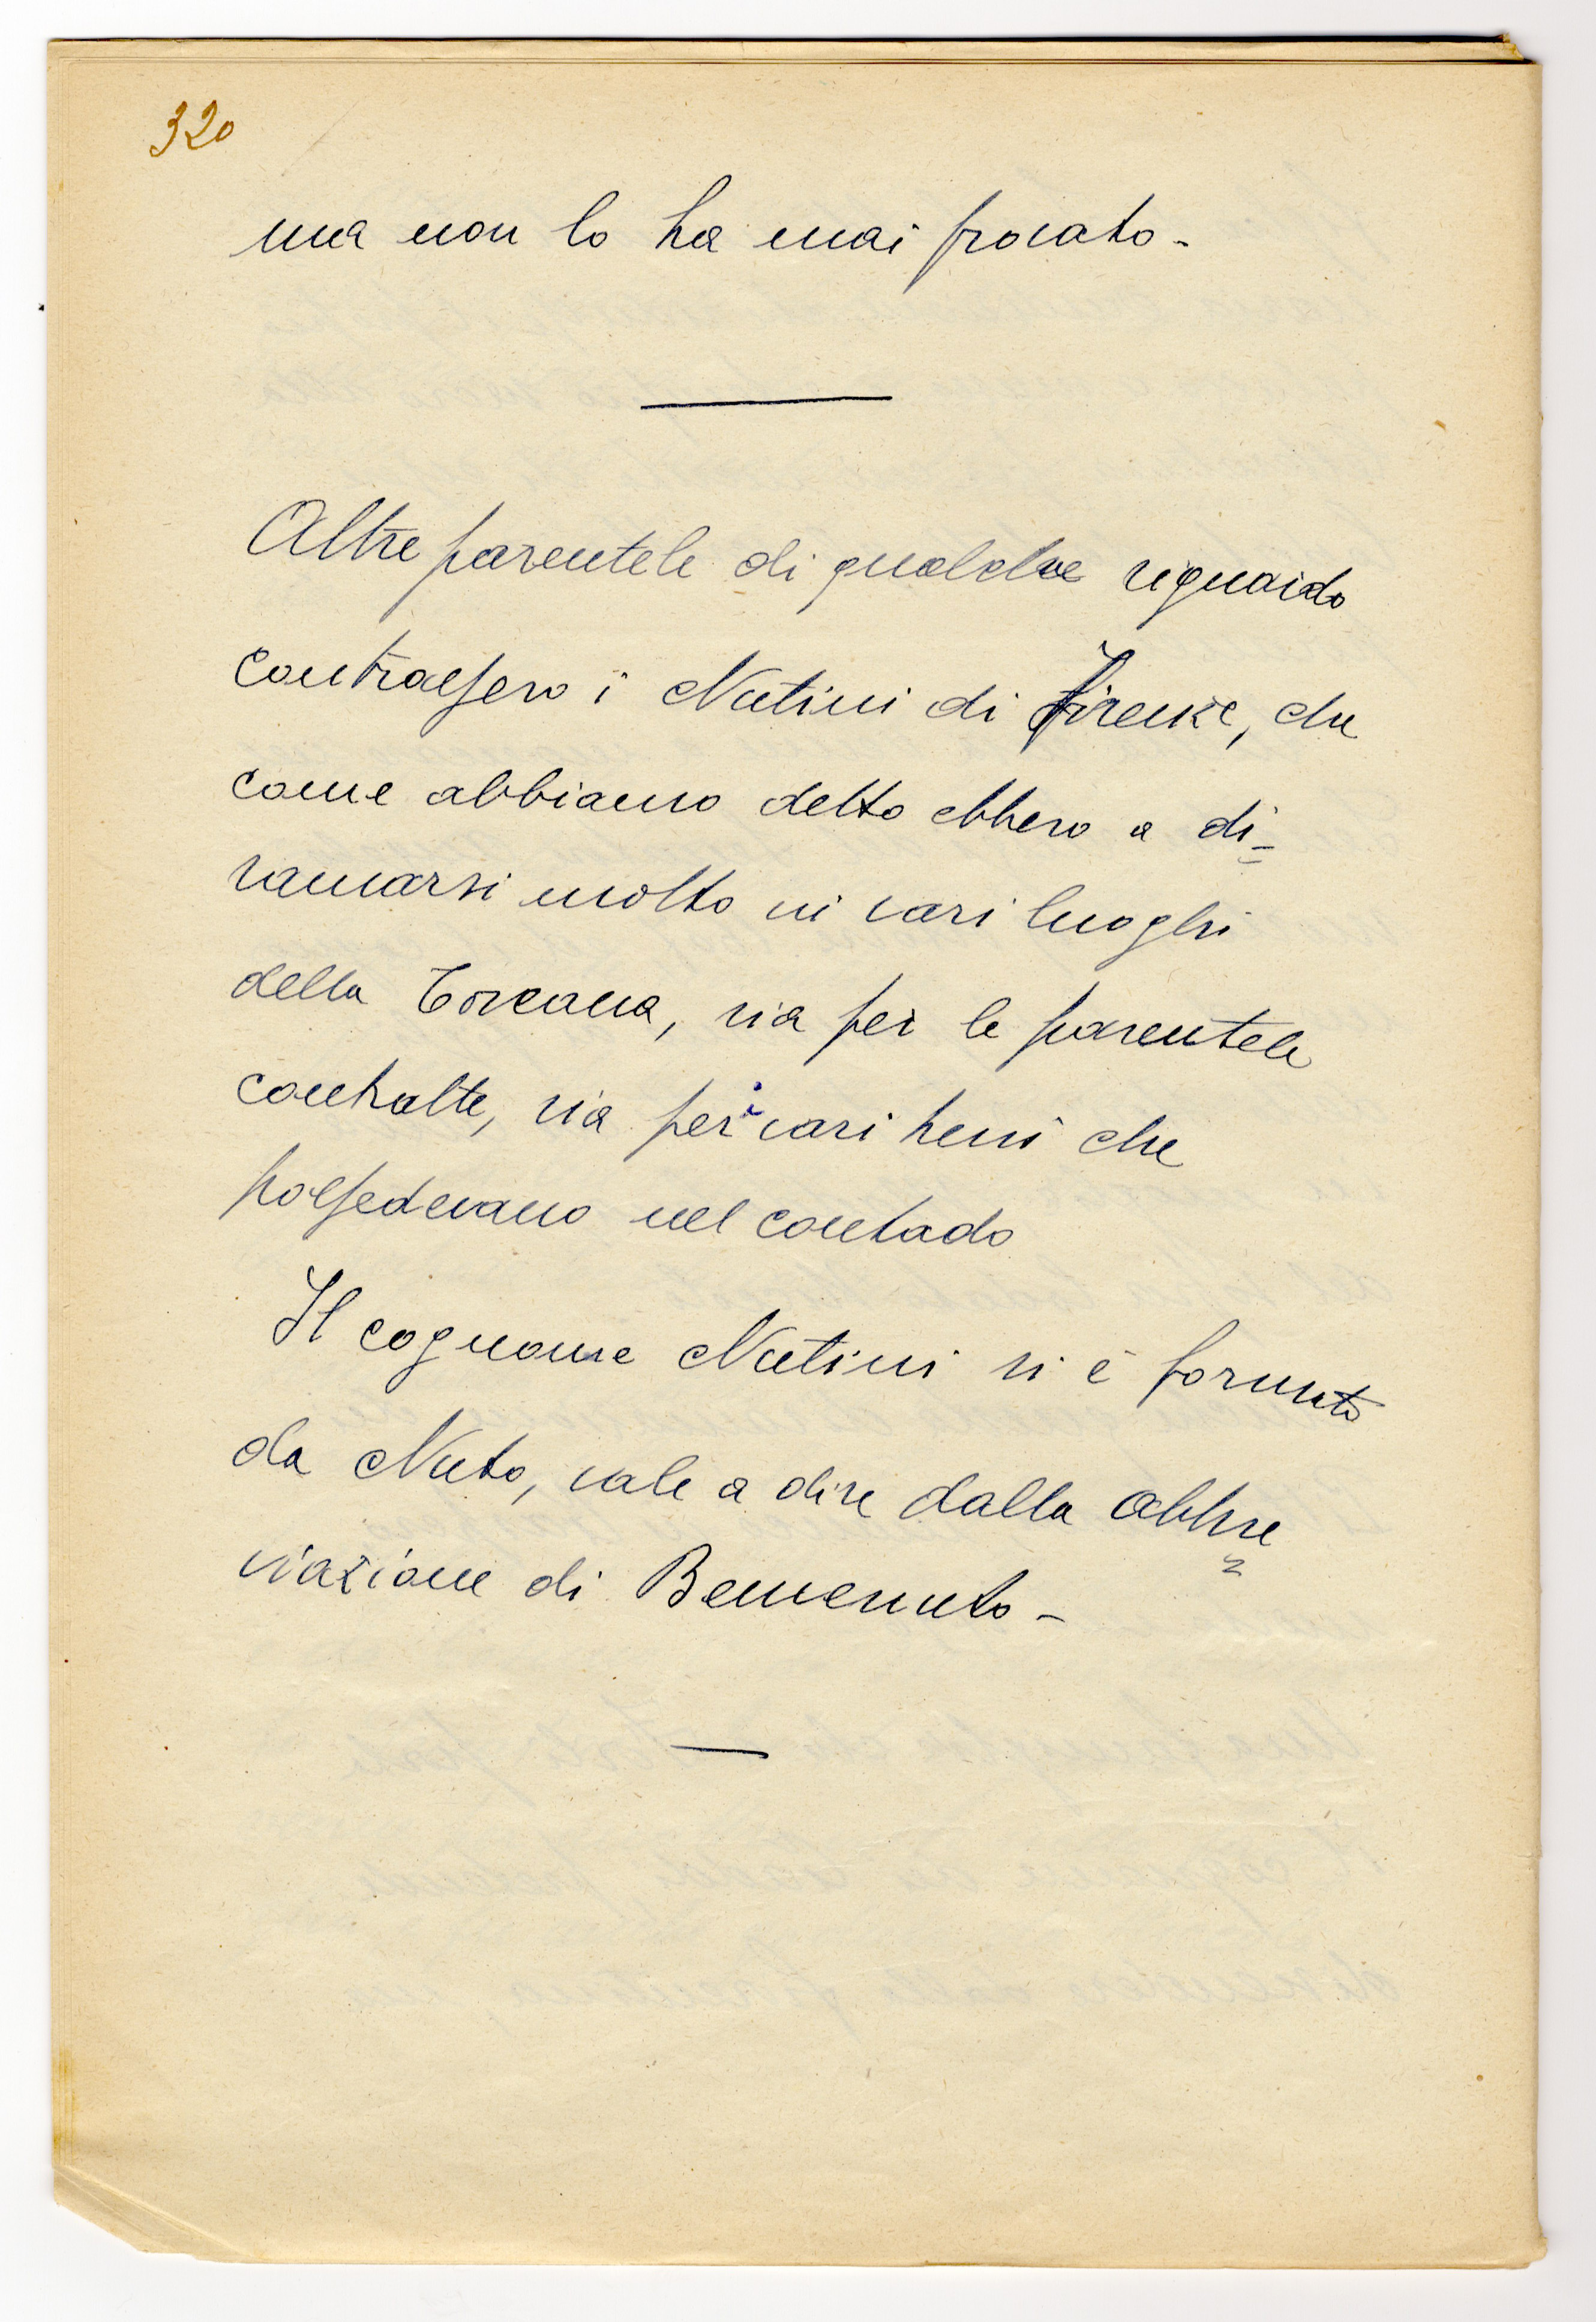 320
ma non lo ha mai provato -
Altre parentele di qualche riguardo
contrassero i Nutini di Firenze, che
come abbiamo detto ebbero a di=
ramarsi molto in vari luoghi
della Toscana, sia per le parentele
contratte, sia per i vari beni che
possedevano nel contado
Il cognome Nutini si è formato
da Nuto, vale a dire dalla abbre=
viazione di Benvenuto -